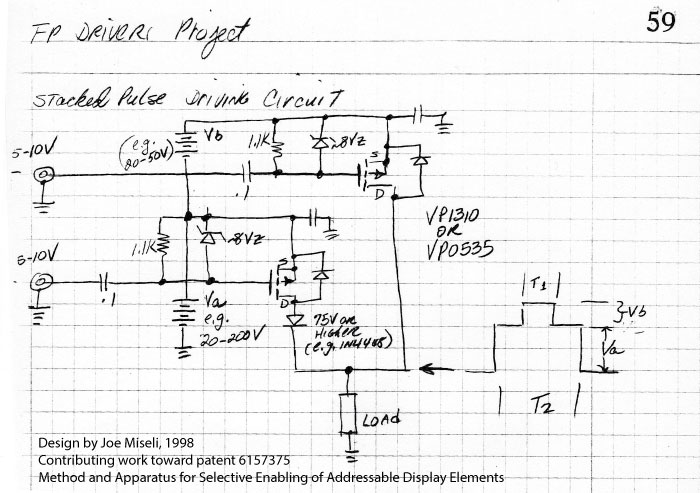 59
FP DRIVERS Project
STACKED PULSE DRIVING CIRCUIT
5-10V
(e.g. 20-50V)
Vb
1.1K
~8VZ
S
D
.1
VP1310
OR
VP0535
5-10V
1.1K
~8VZ
S
D
.1
Va
e.g.
20-200V
75V OR
HIGHER
(e.g. 1N4448)
T1
Vb
Va
T2
LOAD
Design by Joe Miseli, 1998
Contributing work toward patent 6157375
Method and Apparatus for Selective Enabling of Addressable Display Elements